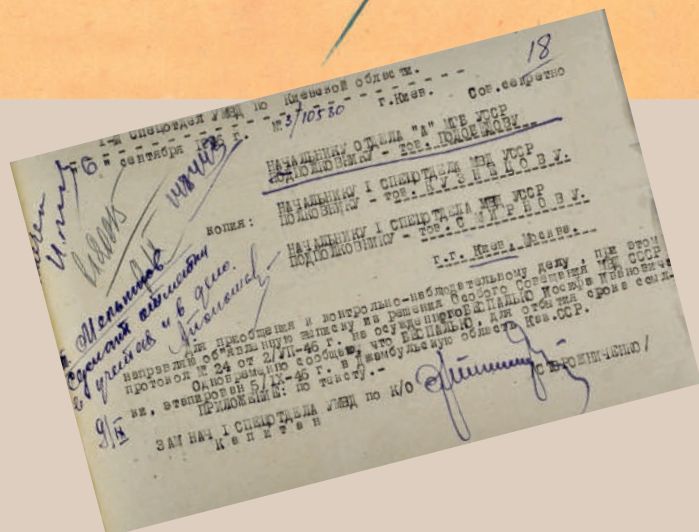 18
1-й Спецотдел УМВД по Киевской области.
"6" сентября 1946 г. № 3/10530 г.Киев. Сов.секретно
НАЧАЛЬНИКУ ОТДЕЛА "А" МГБ УССР
ПОДПОЛКОВНИКУ - тов.
НАЧАЛЬНИКУ I СПЕЦОТДЕЛА МВД УССР
ПОЛКОВНИКУ - тов. КУЗНЕЦОВУ.
КОПИЯ: НАЧАЛЬНИКУ I СПЕЦОТДЕЛА МВД УССР
ПОДПОЛКОВНИКУ - тов. СМИРНОВУ.
г.г. Киев, Москва.
Для приобщения к контрольно-наблюдательному делу, при этом
направляю об"явленную выписку из решения Особого Совещания МВД СССР
протокол № 24 от 2/УП-46 г. на осужденного БЕСПАЛЬКО Иосифа Ивановича
Одновременно сообщаю, что БЕСПАЛЬКО, для отбытия срока ссыл-
ки, этапирован 5/IX-46 г. в Джамбульскую область Каз.ССР.
ПРИЛОЖЕНИЕ: по тексту.-
ЗАМ НАЧ I СПЕЦОТДЕЛА УМВД по К/О
Капитан /СТОРОЖНИЧЕНКО/
Сделать отметки
в учетах и в дело.
9/IX